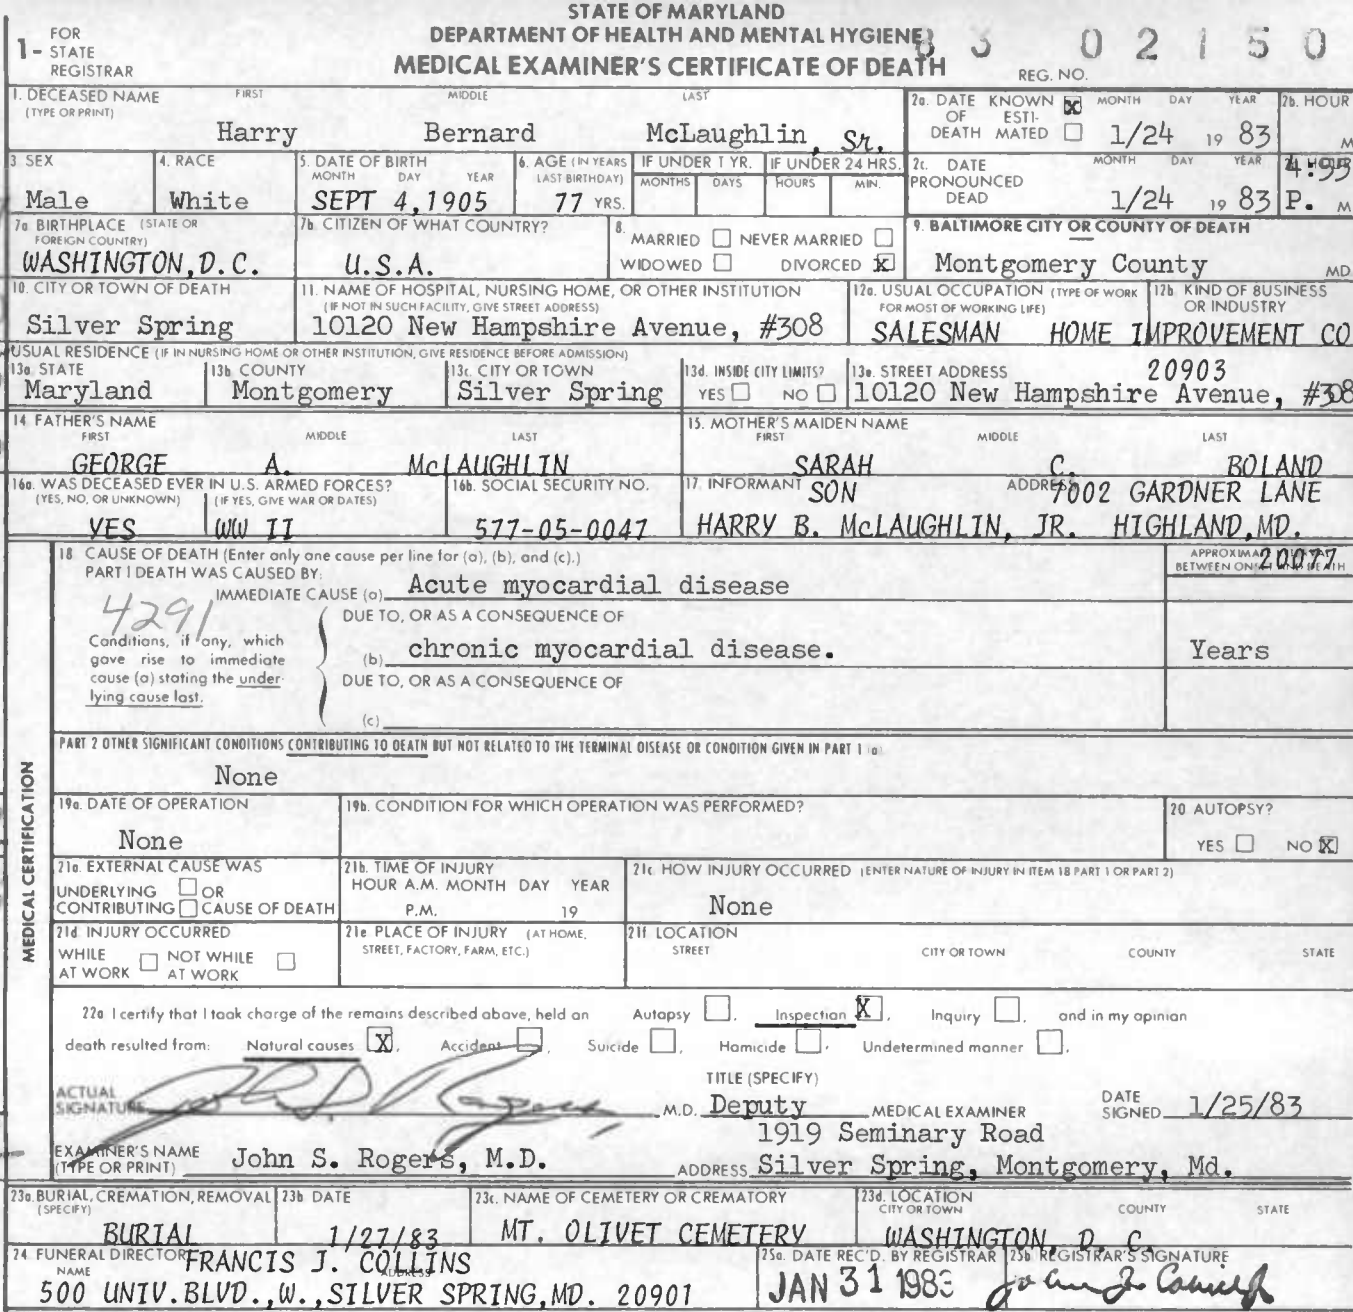 STATE OF MARYLAND
DEPARTMENT OF HEALTH AND MENTAL HYGIENE
MEDICAL EXAMINER'S CERTIFICATE OF DEATH
1- FOR STATE REGISTRAR
REG. NO. 83 02150
1. DECEASED NAME (TYPE OR PRINT) FIRST MIDDLE LAST
Harry Bernard McLaughlin, Sr.
2a. DATE OF DEATH KNOWN X ESTIMATED MONTH DAY YEAR
1/24 19 83
2b. HOUR M
3 SEX
Male
4. RACE
White
5. DATE OF BIRTH MONTH DAY YEAR
SEPT 4,1905
6. AGE (IN YEARS LAST BIRTHDAY)
77 YRS.
IF UNDER 1 YR. MONTHS DAYS
IF UNDER 24 HRS. HOURS MIN.
2c. DATE PRONOUNCED DEAD MONTH DAY YEAR
1/24 19 83
P. M
7a BIRTHPLACE (STATE OR FOREIGN COUNTRY)
WASHINGTON, D.C.
7b. CITIZEN OF WHAT COUNTRY?
U.S.A.
8. MARRIED NEVER MARRIED
WIDOWED DIVORCED X
9. BALTIMORE CITY OR COUNTY OF DEATH
Montgomery County MD
10. CITY OR TOWN OF DEATH
Silver Spring
11. NAME OF HOSPITAL, NURSING HOME, OR OTHER INSTITUTION
(IF NOT IN SUCH FACILITY, GIVE STREET ADDRESS)
10120 New Hampshire Avenue, #308
12a. USUAL OCCUPATION (TYPE OF WORK FOR MOST OF WORKING LIFE)
SALESMAN
12b. KIND OF BUSINESS OR INDUSTRY
HOME IMPROVEMENT CO
USUAL RESIDENCE (IF IN NURSING HOME OR OTHER INSTITUTION, GIVE RESIDENCE BEFORE ADMISSION)
13a STATE
Maryland
13b. COUNTY
Montgomery
13c. CITY OR TOWN
Silver Spring
13d. INSIDE CITY LIMITS?
YES NO
13e. STREET ADDRESS 20903
10120 New Hampshire Avenue, #308
14 FATHER'S NAME FIRST MIDDLE LAST
GEORGE A. McLAUGHLIN
15. MOTHER'S MAIDEN NAME FIRST MIDDLE LAST
SARAH C. BOLAND
16a. WAS DECEASED EVER IN U.S. ARMED FORCES?
(YES, NO, OR UNKNOWN) (IF YES, GIVE WAR OR DATES)
YES WW II
16b. SOCIAL SECURITY NO.
577-05-0047
17. INFORMANT SON ADDRESS 7002 GARDNER LANE
HARRY B. McLAUGHLIN, JR. HIGHLAND, MD.
20077
18 CAUSE OF DEATH (Enter only one cause per line for (a), (b), and (c).)
PART I DEATH WAS CAUSED BY:
IMMEDIATE CAUSE (a) Acute myocardial disease
4291
DUE TO, OR AS A CONSEQUENCE OF
Conditions, if any, which gave rise to immediate cause (a) stating the underlying cause last.
(b) chronic myocardial disease. Years
DUE TO, OR AS A CONSEQUENCE OF
(c)
PART 2 OTHER SIGNIFICANT CONDITIONS CONTRIBUTING TO DEATH BUT NOT RELATED TO THE TERMINAL DISEASE OR CONDITION GIVEN IN PART 1 (a)
None
MEDICAL CERTIFICATION
19a. DATE OF OPERATION
None
19b. CONDITION FOR WHICH OPERATION WAS PERFORMED?
20 AUTOPSY?
YES NO X
21a. EXTERNAL CAUSE WAS
UNDERLYING OR
CONTRIBUTING CAUSE OF DEATH
21b. TIME OF INJURY
HOUR A.M. MONTH DAY YEAR
P.M. 19
21c. HOW INJURY OCCURRED (ENTER NATURE OF INJURY IN ITEM 18 PART 1 OR PART 2)
None
21d INJURY OCCURRED
WHILE AT WORK NOT WHILE AT WORK
21e PLACE OF INJURY (AT HOME, STREET, FACTORY, FARM, ETC.)
21f LOCATION
STREET CITY OR TOWN COUNTY STATE
22a I certify that I took charge of the remains described above, held an Autopsy , Inspection X , Inquiry , and in my opinion
death resulted from: Natural causes X , Accident , Suicide , Homicide , Undetermined manner .
ACTUAL SIGNATURE John S. Rogers M.D.
TITLE (SPECIFY)
Deputy MEDICAL EXAMINER
DATE SIGNED 1/25/83
1919 Seminary Road
EXAMINER'S NAME (TYPE OR PRINT) John S. Rogers, M.D.
ADDRESS Silver Spring, Montgomery, Md.
23a. BURIAL, CREMATION, REMOVAL (SPECIFY)
BURIAL
23b DATE
1/27/83
23c. NAME OF CEMETERY OR CREMATORY
MT. OLIVET CEMETERY
23d. LOCATION CITY OR TOWN COUNTY STATE
WASHINGTON, D. C.
24 FUNERAL DIRECTOR NAME ADDRESS
FRANCIS J. COLLINS
500 UNIV.BLVD.,W.,SILVER SPRING,MD. 20901
25a. DATE REC'D. BY REGISTRAR
JAN 31 1983
25b REGISTRAR'S SIGNATURE